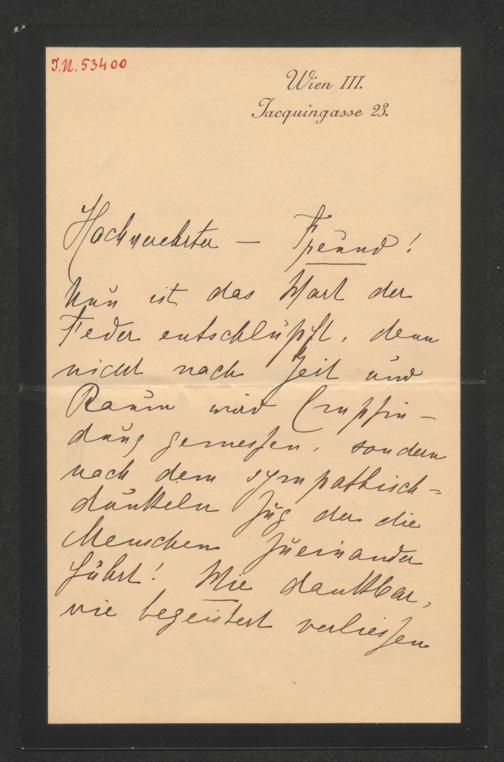 J.N. 53400
Wien III.
Jacquingasse 23.
Hochverehrter — Freund!
Nun ist das Wort der
Feder entschlüpft, denn
nicht nach Zeit und
Raum wird Empfin-
dung gemessen, sondern
nach dem sympathisch-
dunkeln Zug der die
Menschen zueinander
führt! Wie dankbar,
wie begeistert verliessen